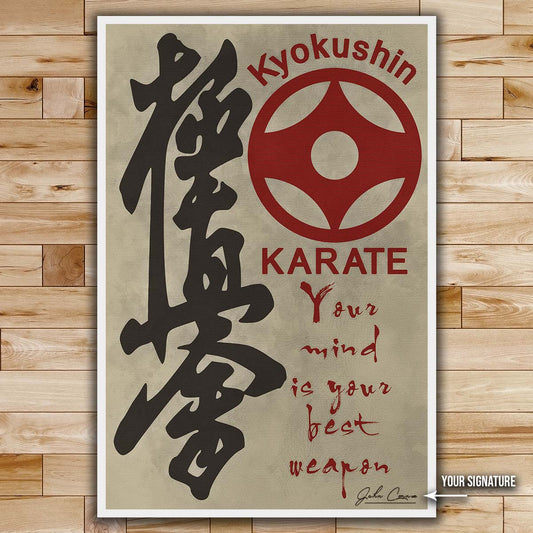 極真会
Kyokushin
KARATE
Your
mind
is your
best
weapon
John
YOUR SIGNATURE